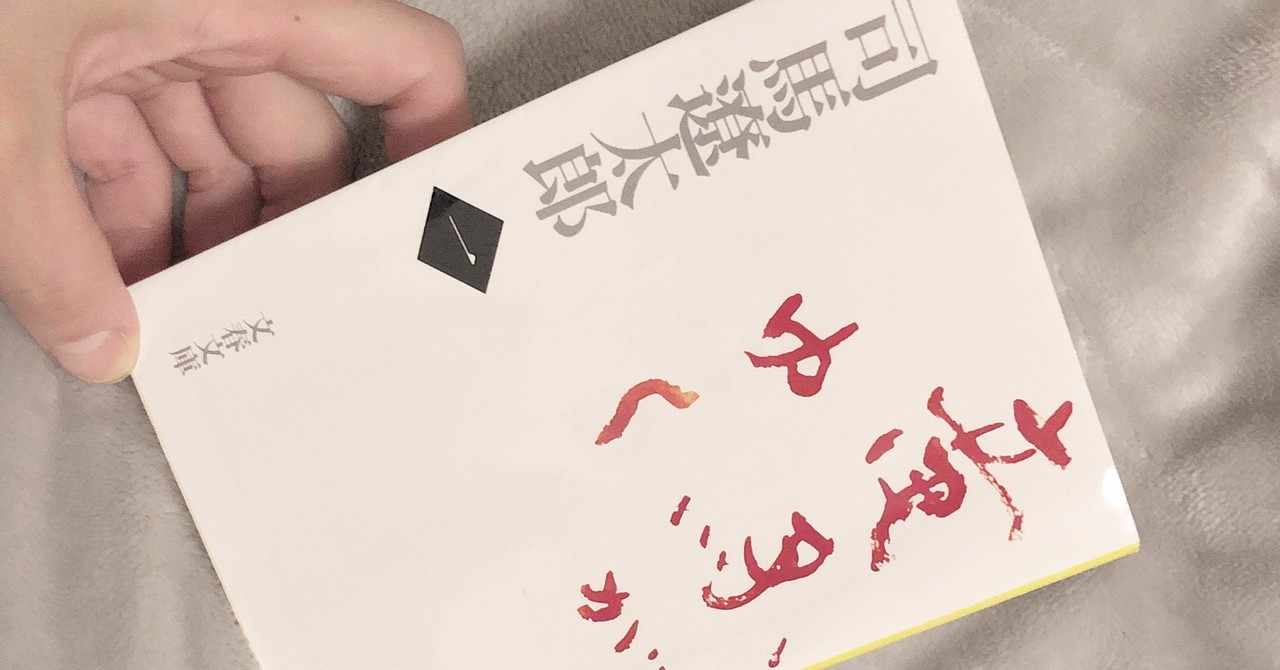 竜馬が
ゆく
一
司馬遼太郎
文春文庫